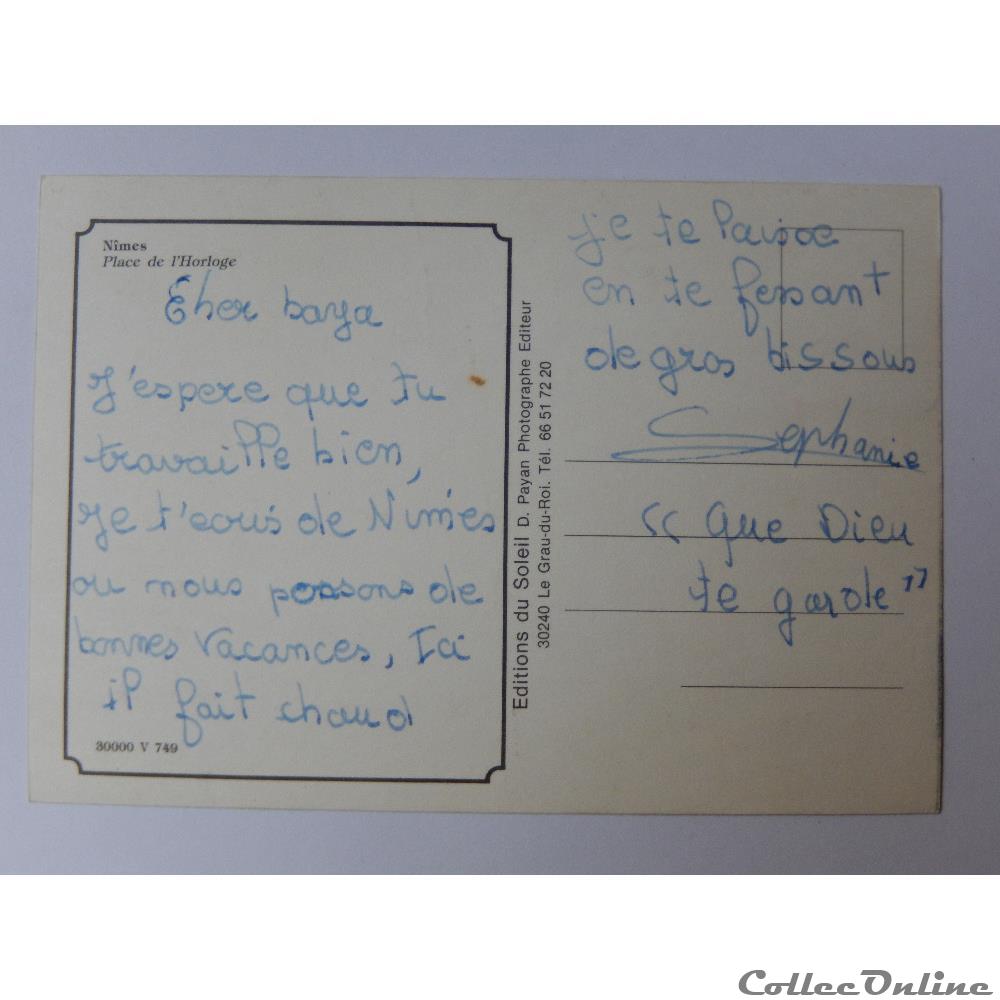 Nîmes
Place de l'Horloge
Cher baya
J'espere que tu
travaille bien,
je t'ecris de Nimes
ou nous passons de
bonnes vacances, Ici
il fait chaud
30000 V 749
Editions du Soleil D. Payan Photographe Editeur
30240 Le Grau-du-Roi. Tél. 66 51 72 20
je te laisse
en te fessant
de gros bissous
Sephanie
<< Que Dieu
te garde "
CollecOnline